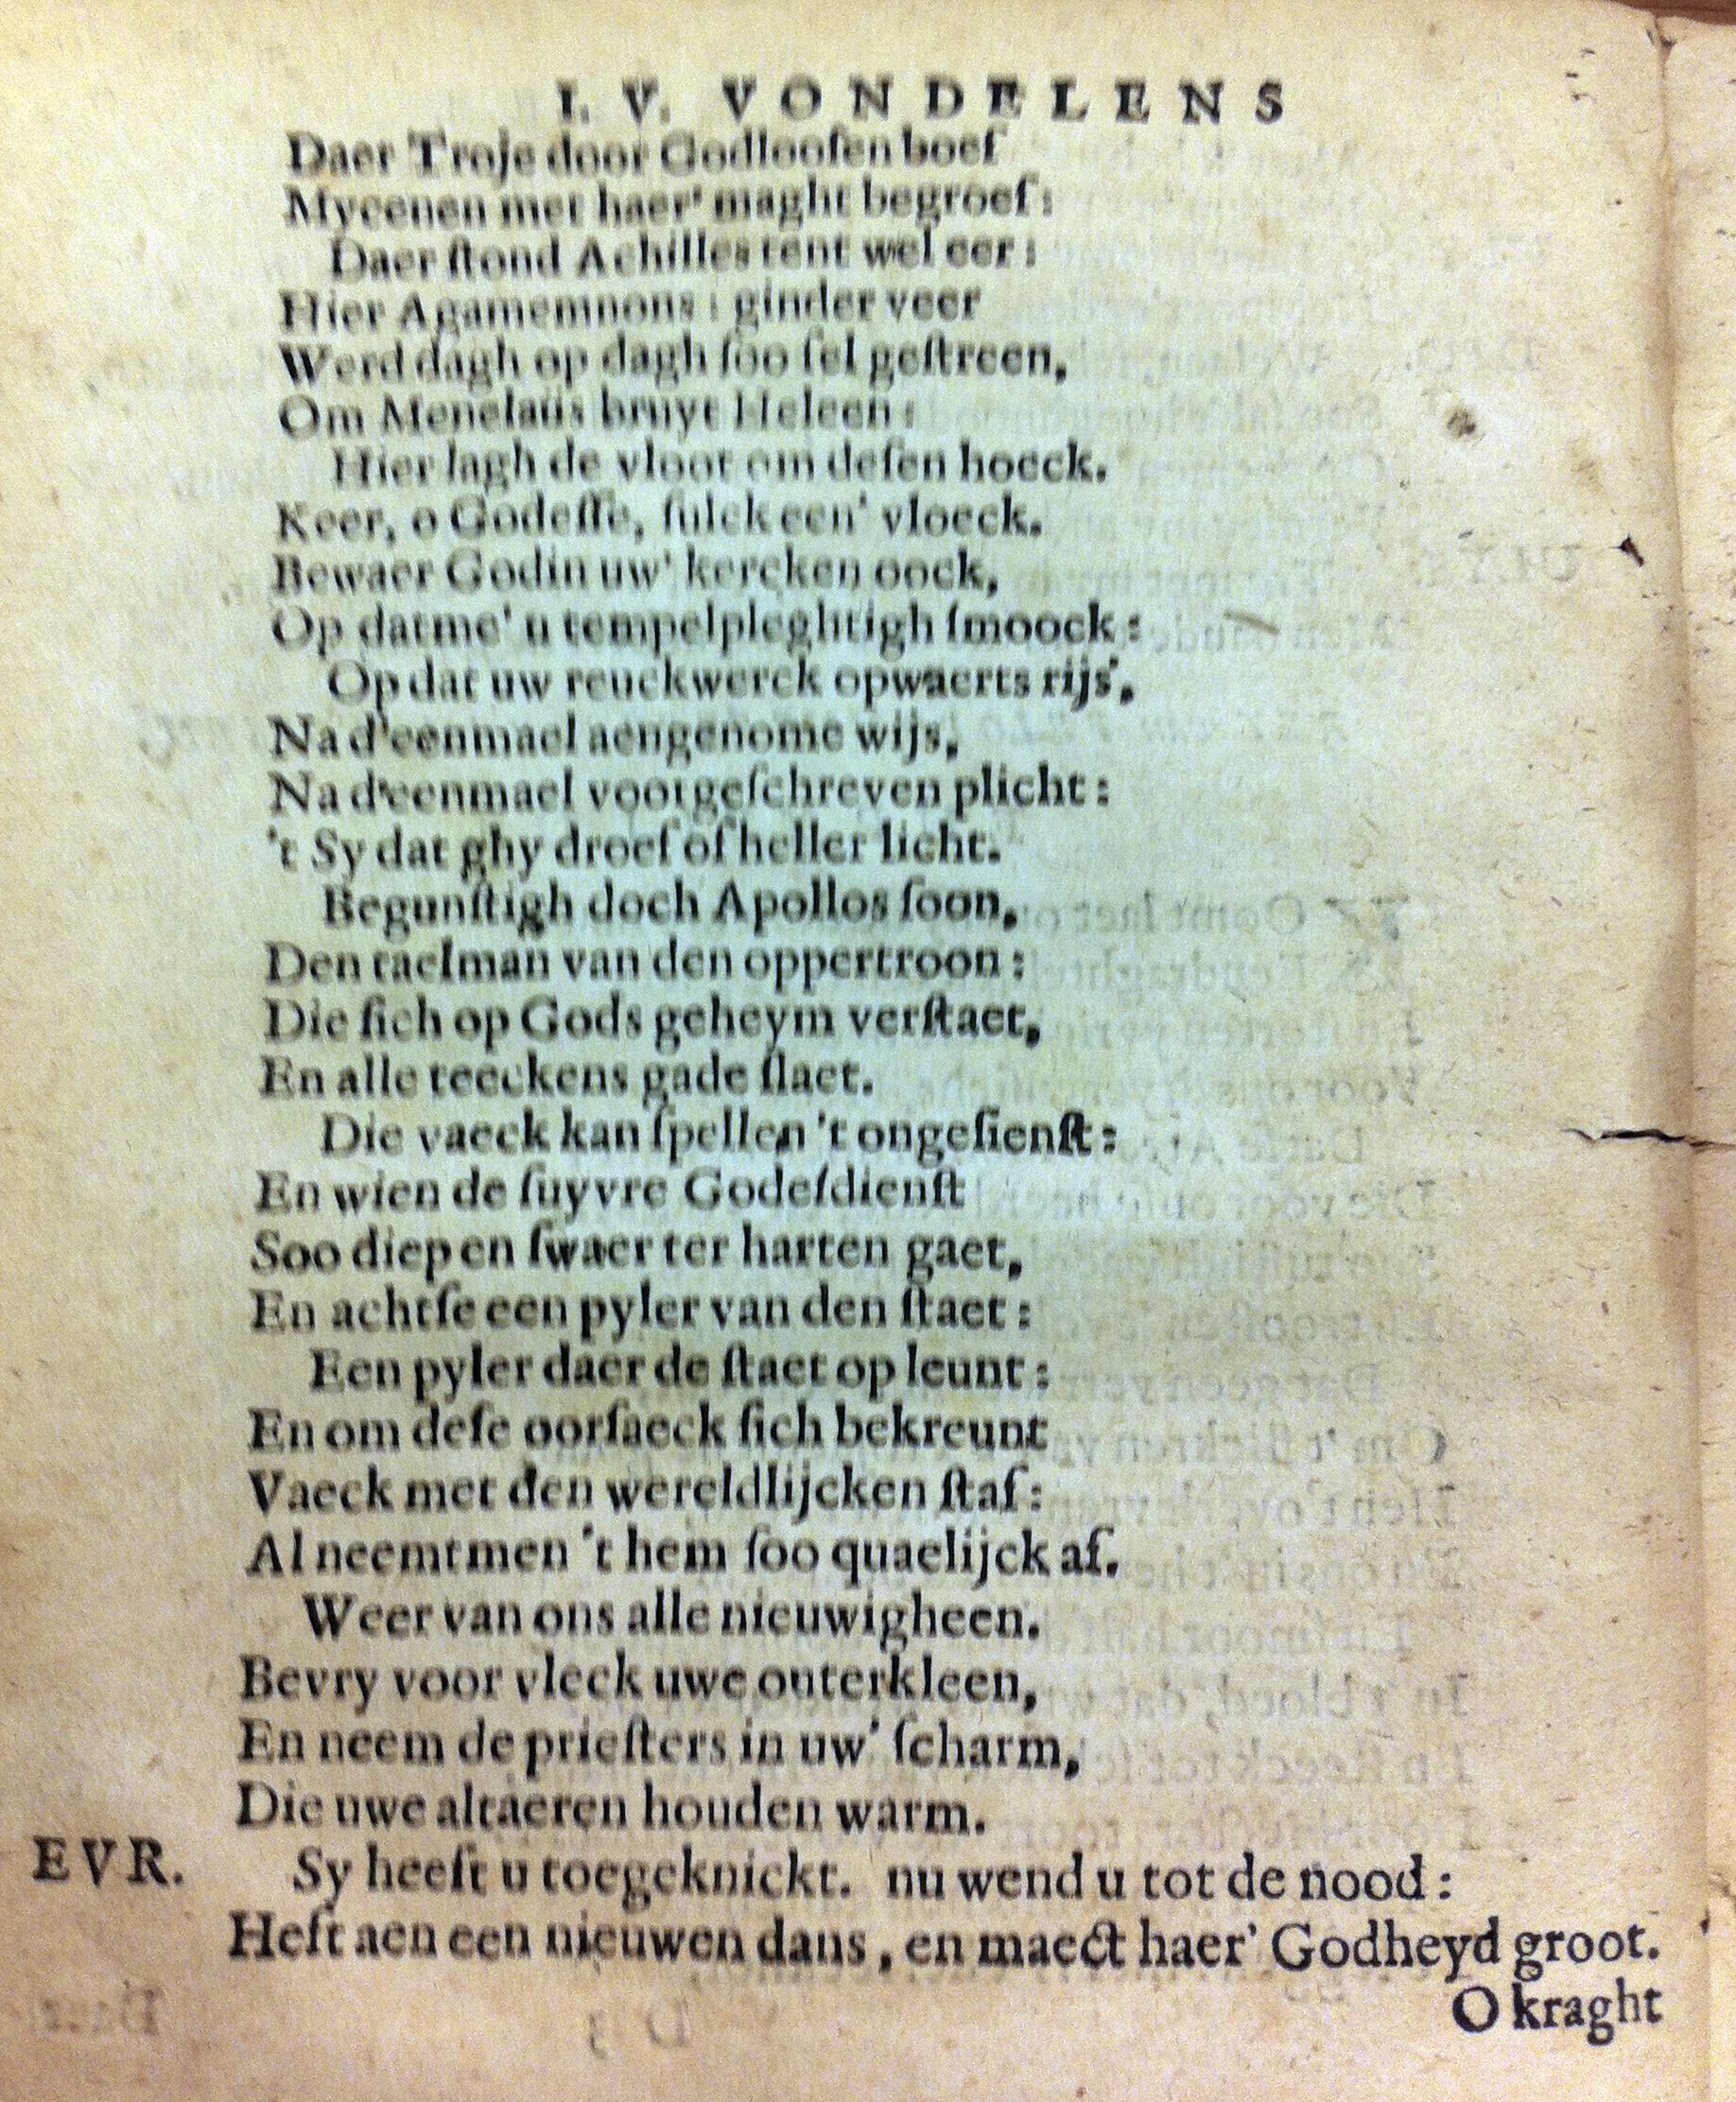 I. V. VONDELENS
Daer Troje door Godloosen boef
Mycenen met haer' maght begroef:
Daer ſtond Achilles tent wel eer:
Hier Agamemnons: ginder veer
Werd dagh op dagh ſoo fel geſtreen,
Om Menelaüs bruyt Heleen:
Hier lagh de vloot om deſen hoeck.
Keer, o Godeſſe, ſulck een' vloeck.
Bewaer Godin uw' kercken oock,
Op datme' u tempelpleghtigh ſmoock:
Op dat uw reuckwerck opwaerts rijs',
Na d'eenmael aengenome wijs,
Na d'eenmael voorgeſchreven plicht:
't Sy dat ghy droef of heller licht.
Begunſtigh doch Apollos ſoon,
Den taelman van den oppertroon:
Die ſich op Gods geheym verſtaet,
En alle teeckens gade ſlaet.
Die vaeck kan ſpellen 't ongeſienſt:
En wien de ſuyvre Godeſdienſt
Soo diep en ſwaer ter harten gaet,
En achtſe een pyler van den ſtaet:
Een pyler daer de ſtaet op leunt:
En om deſe oorſaeck ſich bekreunt
Vaeck met den wereldlijcken ſtaf:
Al neemtmen 't hem ſoo quaelijck af.
Weer van ons alle nieuwigheen.
Bevry voor vleck uwe outerkleen,
En neem de prieſters in uw' ſcharm,
Die uwe altaeren houden warm.
EVR. Sy heeft u toegeknickt. nu wend u tot de nood:
Heft aen een nieuwen dans, en maect haer' Godheyd groot.
O kraght